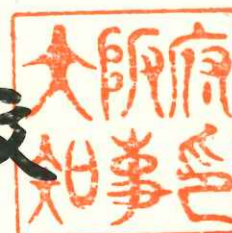 大阪府
知事印